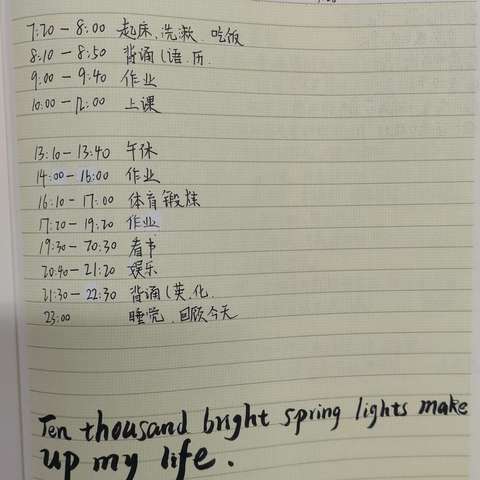 7:20 - 8:00 起床、洗漱、吃饭
8:10 - 8:50 背诵(语.历.
9:00 - 9:40 作业
10:00 - 12:00 上课
13:10 - 13:40 午休
14:00 - 16:00 作业
16:10 - 17:00 体育锻炼
17:20 - 19:20 作业
19:30 - 20:30 看书
20:40 - 21:20 娱乐
21:30 - 22:30 背诵(英.化.
23:00 睡觉.回顾今天
Ten thousand bright spring lights make
up my life.